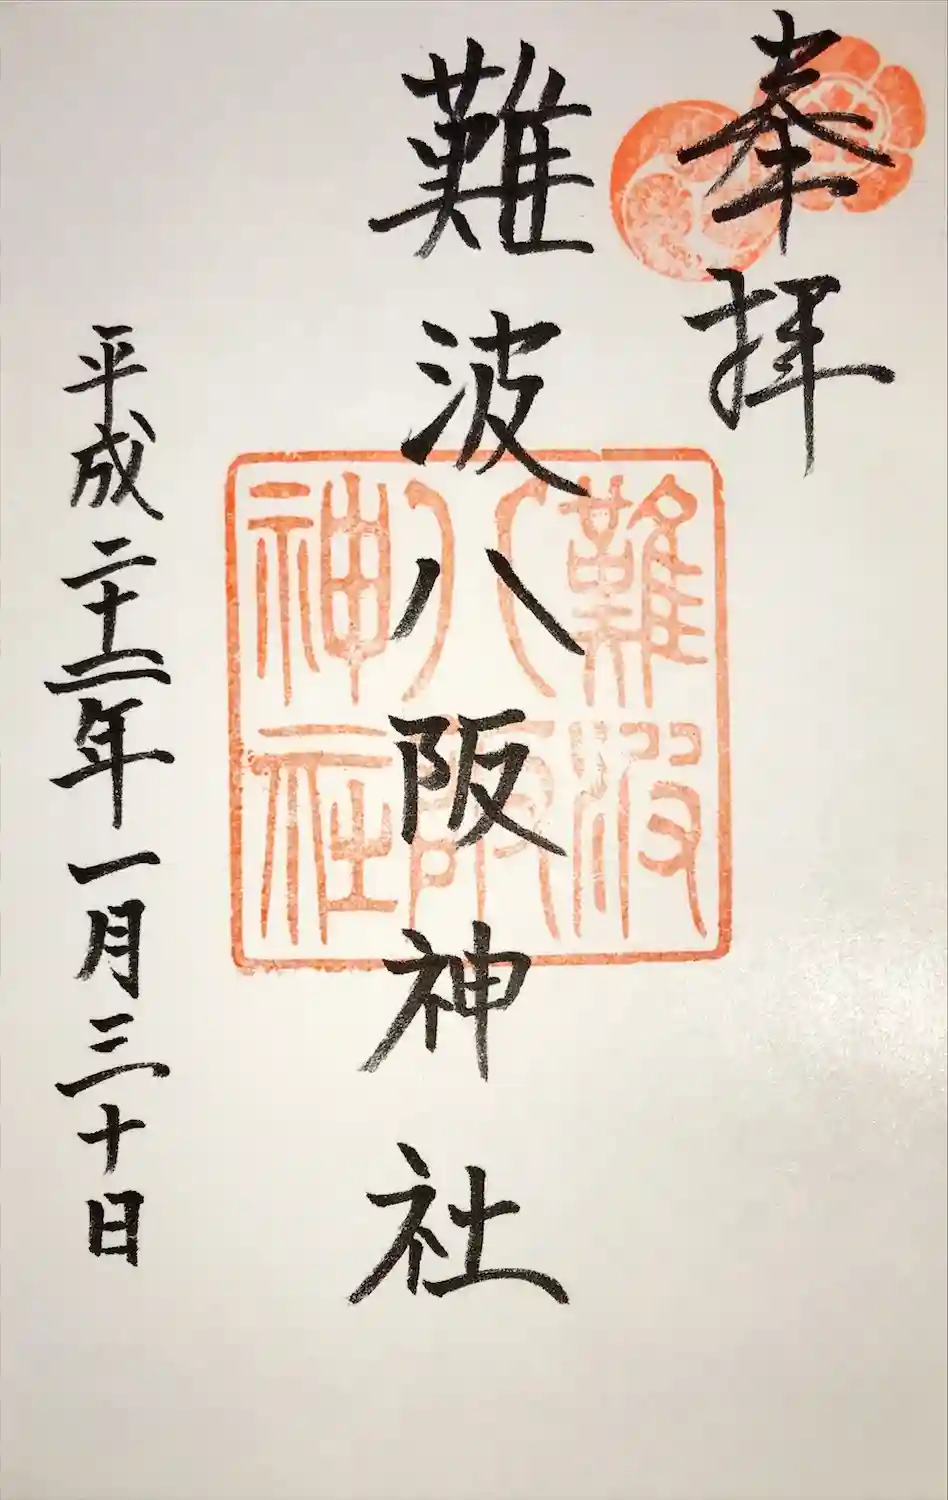 奉拝
難波八阪神社
平成二十二年一月三十日
難波
八阪
神社